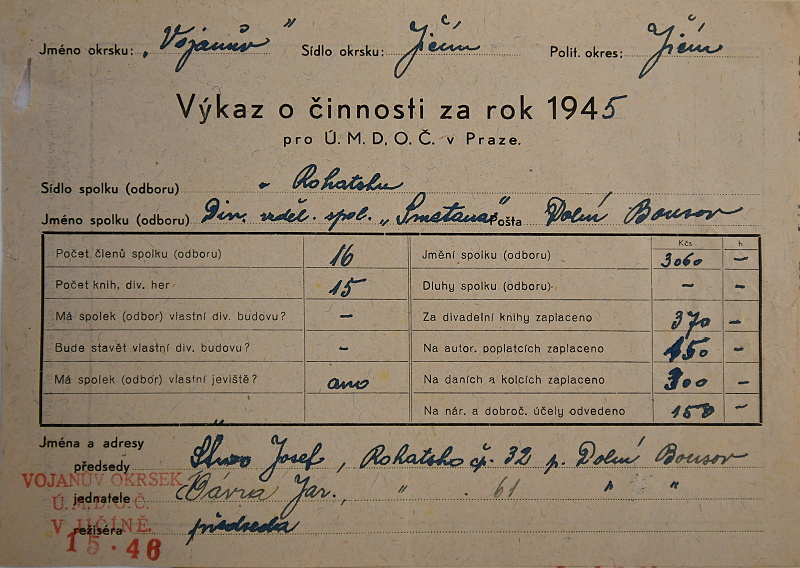 Jméno okrsku: „Vojanův” Sídlo okrsku: Jičín Polit. okres: Jičín
Výkaz o činnosti za rok 1945
pro Ú. M. D. O. Č. v Praze.
Sídlo spolku (odboru) Rohatsku
Jméno spolku (odboru) Div. vzděl. spol. „Smetana” Pošta Dolní Bousov
Kčs h
Počet členů spolku (odboru) 16 Jmění spolku (odboru) 3060 —
Počet knih, div. her 15 Dluhy spolku (odboru) — —
Má spolek (odbor) vlastní div. budovu? — Za divadelní knihy zaplaceno 370 —
Bude stavět vlastní div. budovu? — Na autor. poplatcích zaplaceno 150 —
Má spolek (odbor) vlastní jeviště? ano Na daních a kolcích zaplaceno 300 —
Na nár. a dobroč. účely odvedeno 150 —
Jména a adresy
předsedy Josef, Rohatsko čp. 32 p. Dolní Bousov
jednatele Vávra Jar., „ . 61 „ „
režiséra předseda
VOJANŮV OKRSEK
Ú. M. D. O. Č.
V JIČÍNĚ.
15 · 46